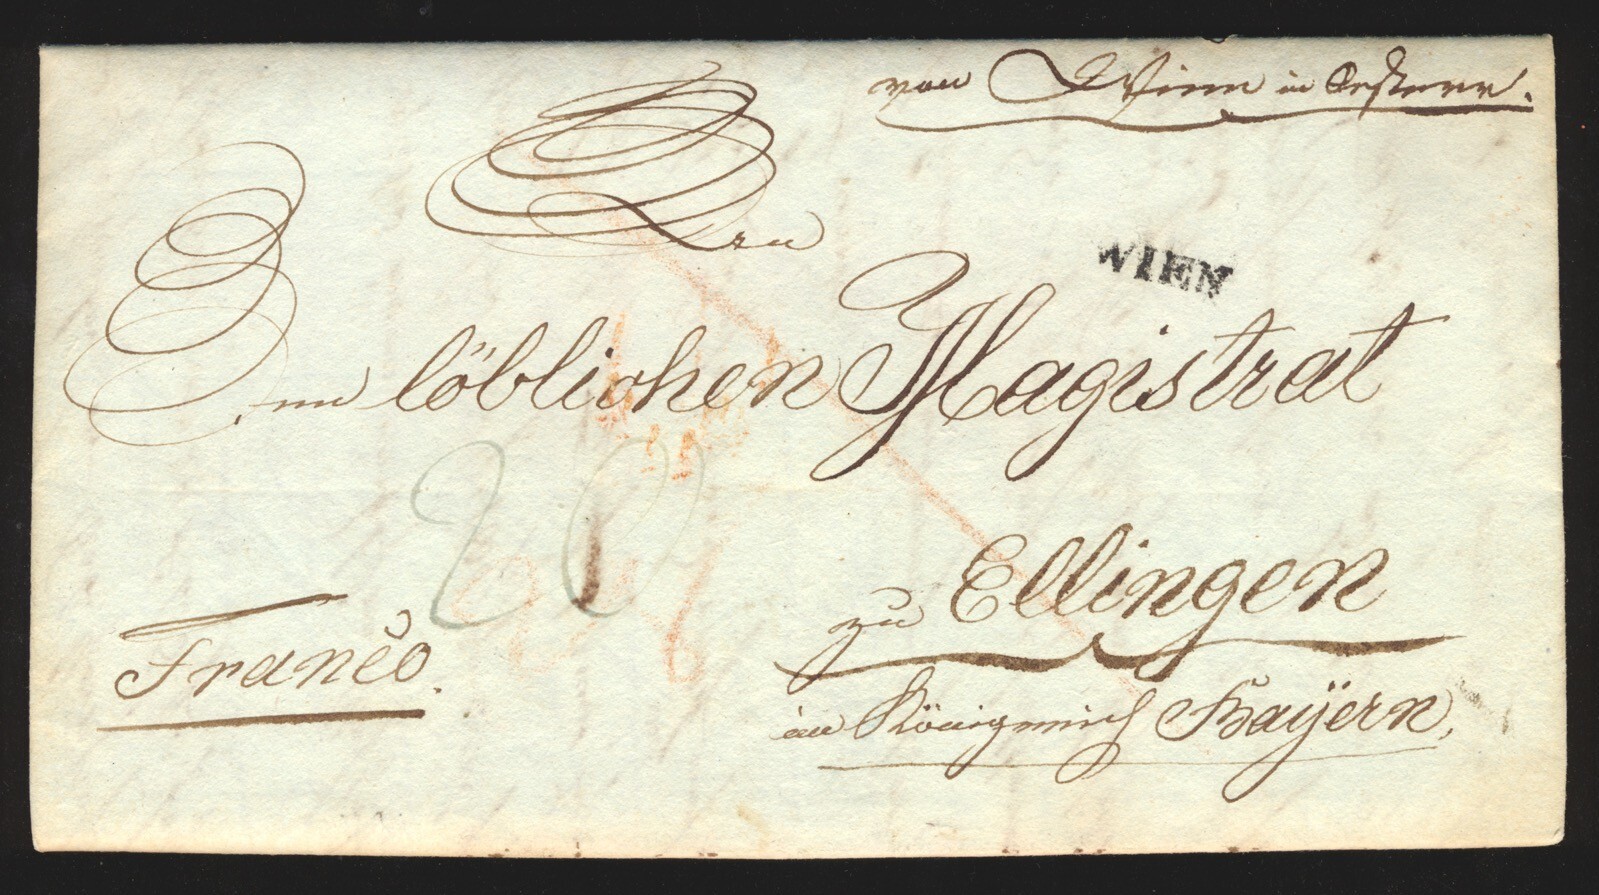 von Wien in Oesterr.
An
WIEN
Einen löblichen Magistrat
20
zu Ellingen
Franco.
im Königreich Bayern,